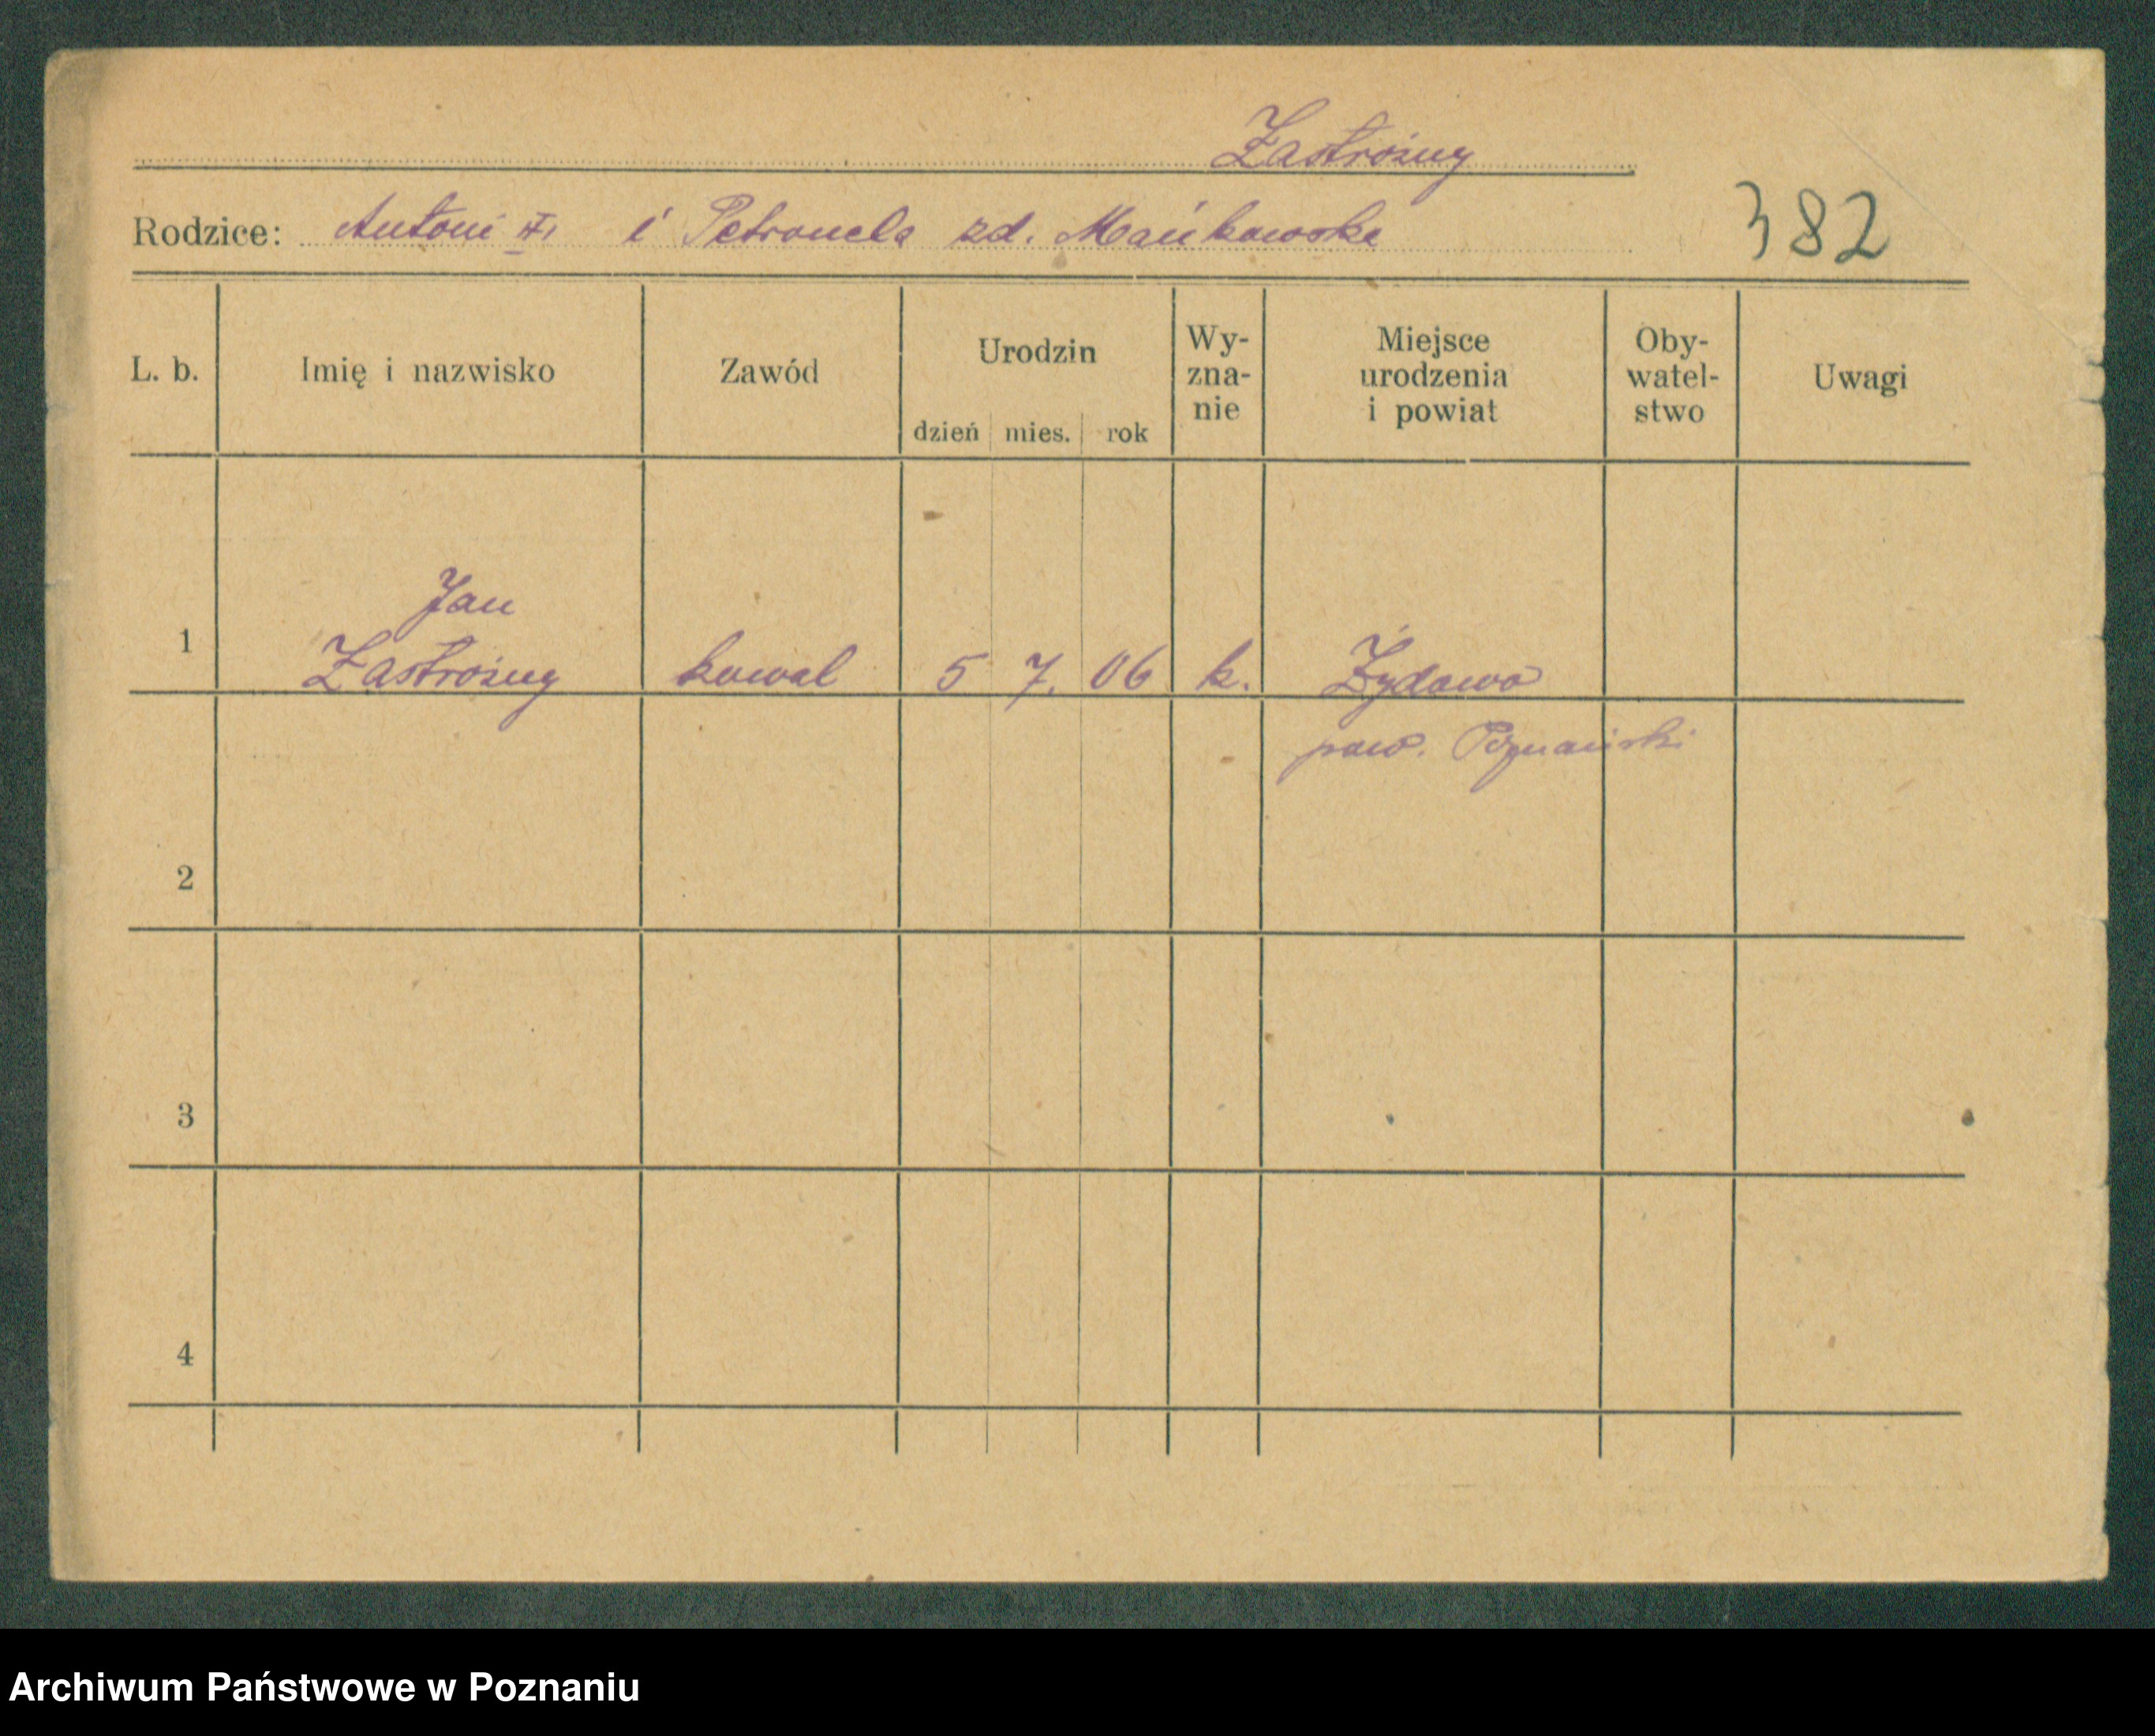 Zastróżny
Rodzice: Antoni II i Petronela zd. Mańkowska
382
L. b. Imię i nazwisko Zawód Urodzin dzień mies. rok Wy-zna-nie Miejsce urodzenia i powiat Oby-watel-stwo Uwagi
Jan
1 Zastróżny kowal 5 7. 06 k. Żydowo
pow. Poznański
2
3
4
Archiwum Państwowe w Poznaniu